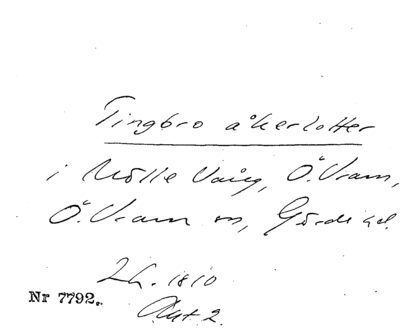 Tingbro åkerlotter
i Mölle Vång, Ö. Vram,
Ö. Vram sn, Gärds hd.
Lh. 1810
Nr 7792.
Akt 2.